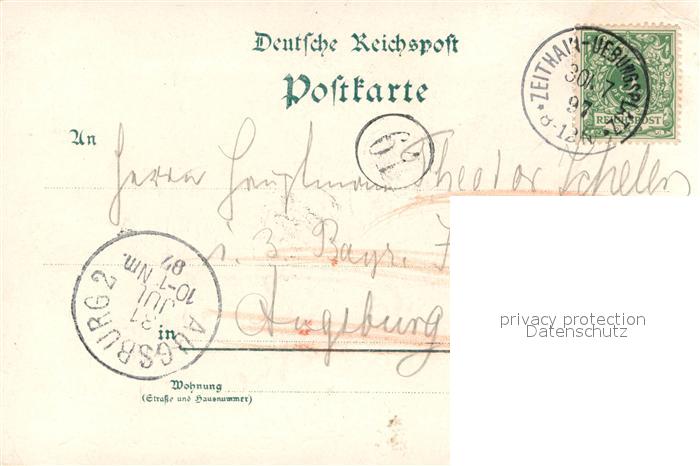 Deutsche Reichspost
Postkarte
ZEITHAIN-UEBUNGSPLATZ
30. 7
97
8-12N
REICHSPOST
An
62
Herrn Hauptmann Theodor Scheller
i. 3. Bayr.
AUGSBURG 2
31
JUL
10-1 Nm.
97
in Augsburg
privacy protection
Datenschutz
Wohnung
(Straße und Hausnummer)